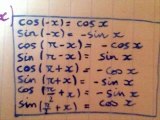 cos(-x) = cos x
sin(-x) = -sin x
cos(π-x) = -cos x
sin(π-x) = sin x
cos(π+x) = -cos x
sin(π+x) = -sin x
cos(π/2+x) = -sin x
sin(π/2+x) = cos x